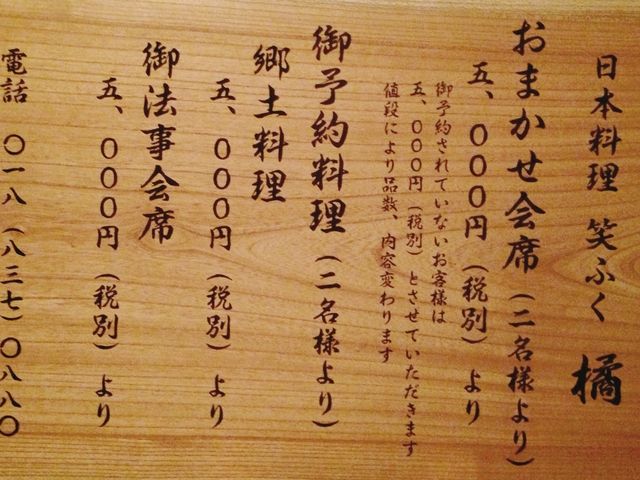 日本料理 笑ふく 橘
おまかせ会席(二名様より)
五、〇〇〇円(税別)より
御予約されていないお客様は
五、〇〇〇円(税別)とさせていただきます
値段により品数、内容変わります
御予約料理(二名様より)
郷土料理
五、〇〇〇円(税別)より
御法事会席
五、〇〇〇円(税別)より
電話 〇一八(八三七)〇八八〇